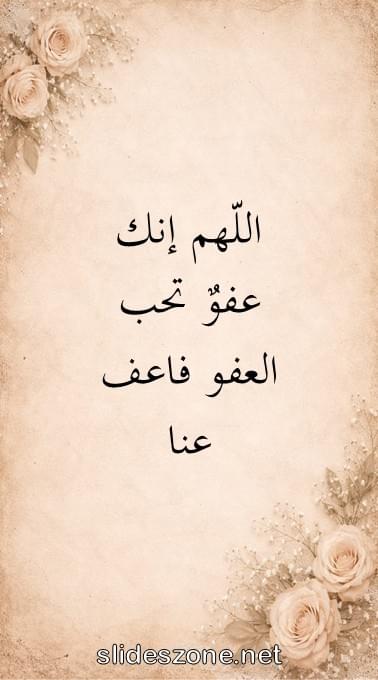 اللّهم إنك
عفوٌ تحب
العفو فاعف
عنا
slideszone.net